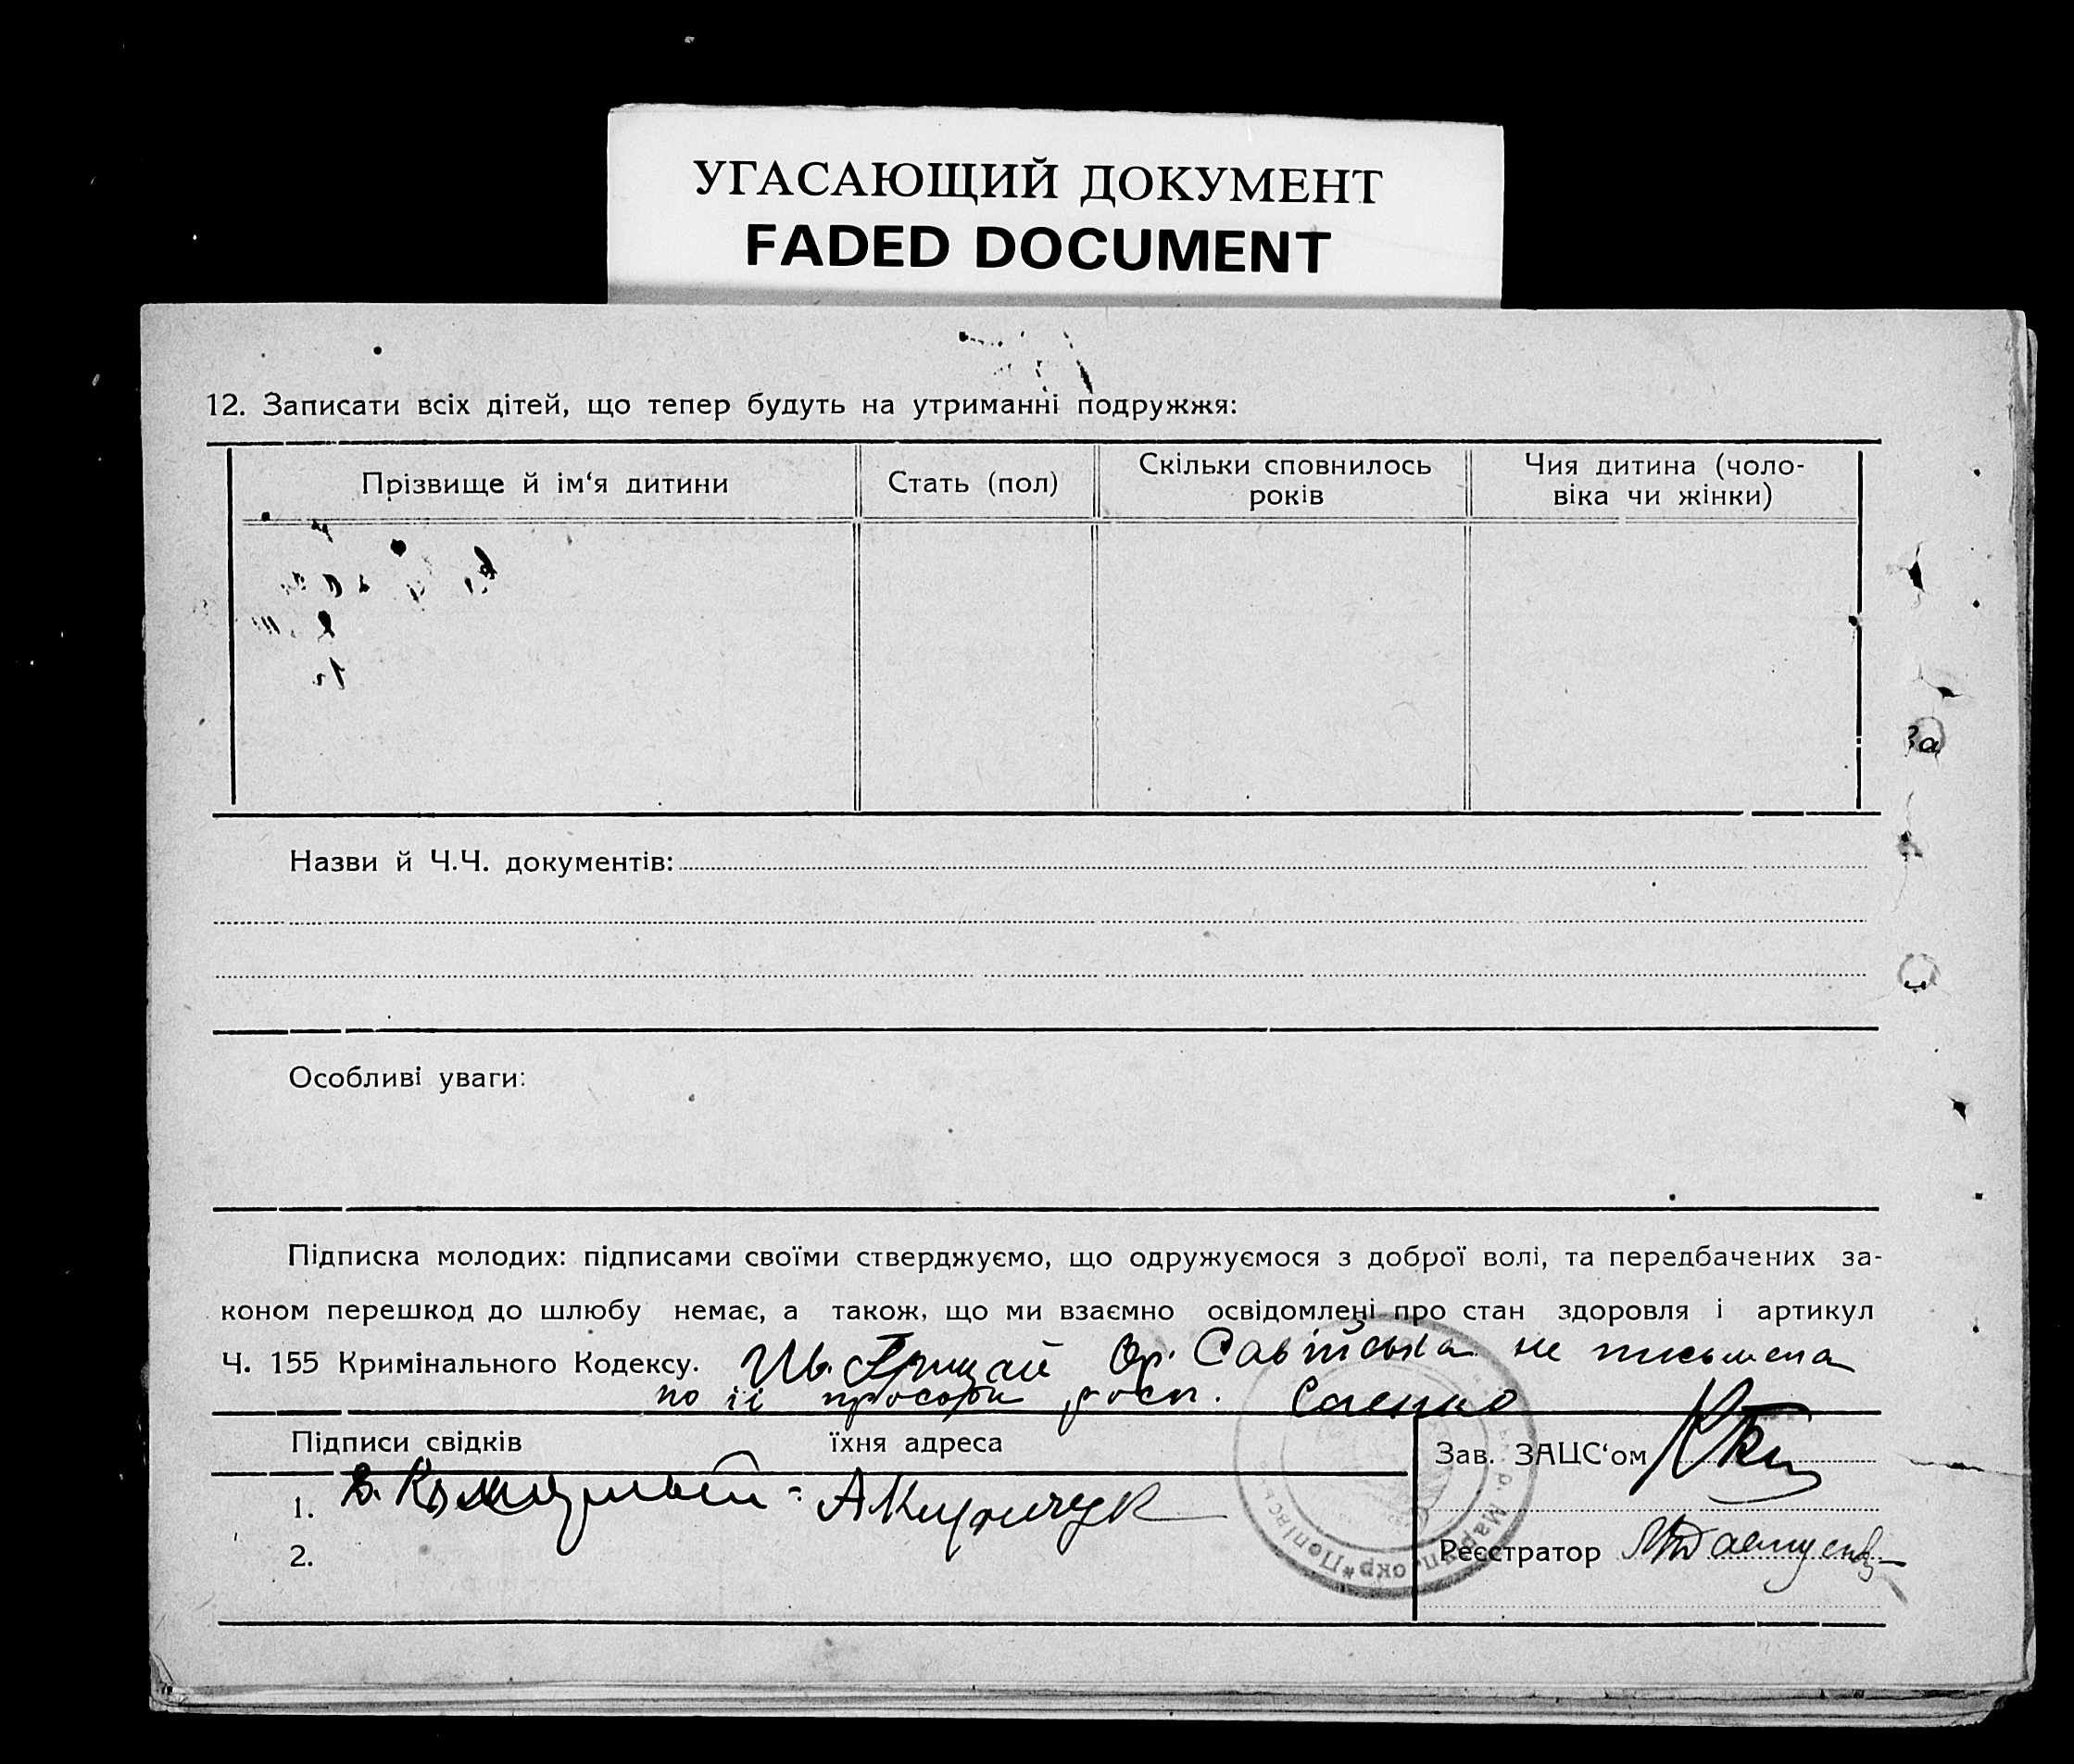 УГАСАЮЩИЙ ДОКУМЕНТ
FADED DOCUMENT
12. Записати всіх дітей, що тепер будуть на утриманні подружжя:
Прізвище й ім‘я дитини
Стать (пол)
Скільки сповнилось
років
Чия дитина (чоло-
віка чи жінки)
За
Назви й Ч.Ч. документів:
Особливі уваги:
Підписка молодих: підписами своїми стверджуємо, що одружуємося з доброї волі, та передбачених за-
коном перешкод до шлюбу немає, а також, що ми взаємно освідомлені про стан здоровля і артикул
Ч. 155 Кримінального Кодексу. Ив. Грицай Ор. Савітська не письмена
по її просьби росп. Саенко
Підписи свідків їхня адреса
Зав. ЗАЦС‘ом
1. А Кирпичук
2.
Реєстратор
р. Маріуп. окр*Попівсь